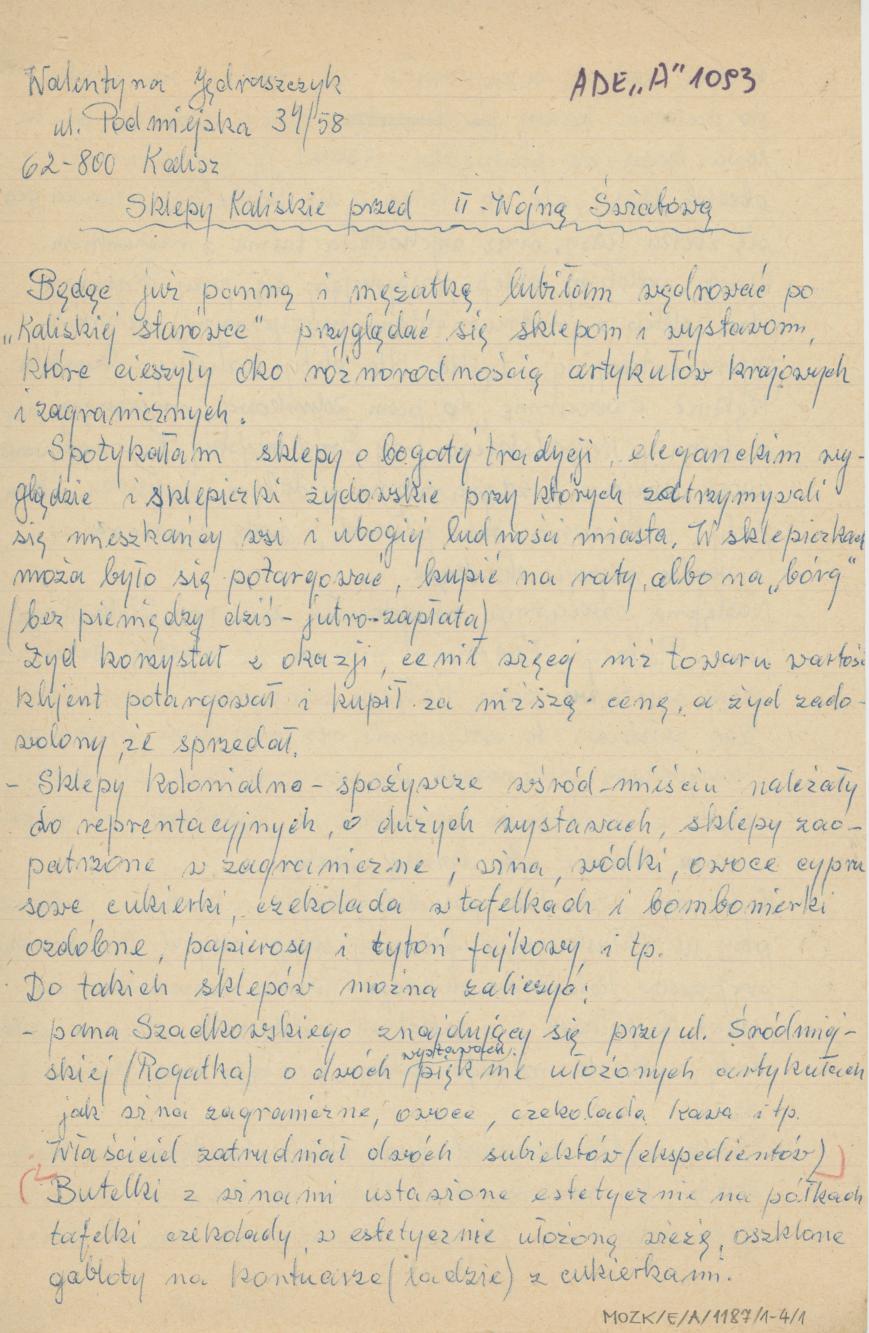 Walentyna Jędraszczyk
ADE „A” 1093
ul. Podmiejska 34/58
62-800 Kalisz
Sklepy Kaliskie przed II-Wojną Światową
Będąc już panną i mężatką lubiłam wędrować po
„Kaliskiej starówce” przyglądać się sklepom i wystawom,
które cieszyły oko różnorodnością artykułów krajowych
i zagranicznych.
Spotykałam sklepy o bogatej tradycji, eleganckim wy-
glądzie i sklepiczki żydowskie przy których zatrzymywali
się mieszkańcy wsi i ubogiej ludności miasta. W sklepiczkach
moża było się potargować, kupić na raty, albo na „bórg”
(bez pieniędzy dziś - jutro - zapłata)
Żyd korzystał z okazji, cenił więcej niż towaru wartość
klijent potargował i kupił za niższą cenę, a żyd zado-
wolony, że sprzedał.
- Sklepy kolonialno - spożywcze wśród-mieściu należały
do reprentacyjnych, o dużych wystawach, sklepy zao-
patrzone w zagraniczne; wina, wódki, owoce cypru
sowe, cukierki, czekolada w tafelkach i bombonierki
ozdobne, papierosy i tytoń fajkowy, i tp.
Do takich sklepów można zaliczyć:
- pana Szadkowskiego znajdujący się przy ul. Śródmiej-
skiej (Rogatka) o dwóch wystawach pięknie ułożonych artykułach
jak wina zagraniczne, owoce, czekolada kawa i tp.
Właściciel zatrudniał dwóch subiektów (ekspedientów)
Butelki z winami ustawione estetycznie na półkach
tafelki czekolady w estetycznie ułożoną wieżę, oszklone
gabloty na kontuarze (ladzie) z cukierkami.
MOZK/E/A/1187/1-4/1